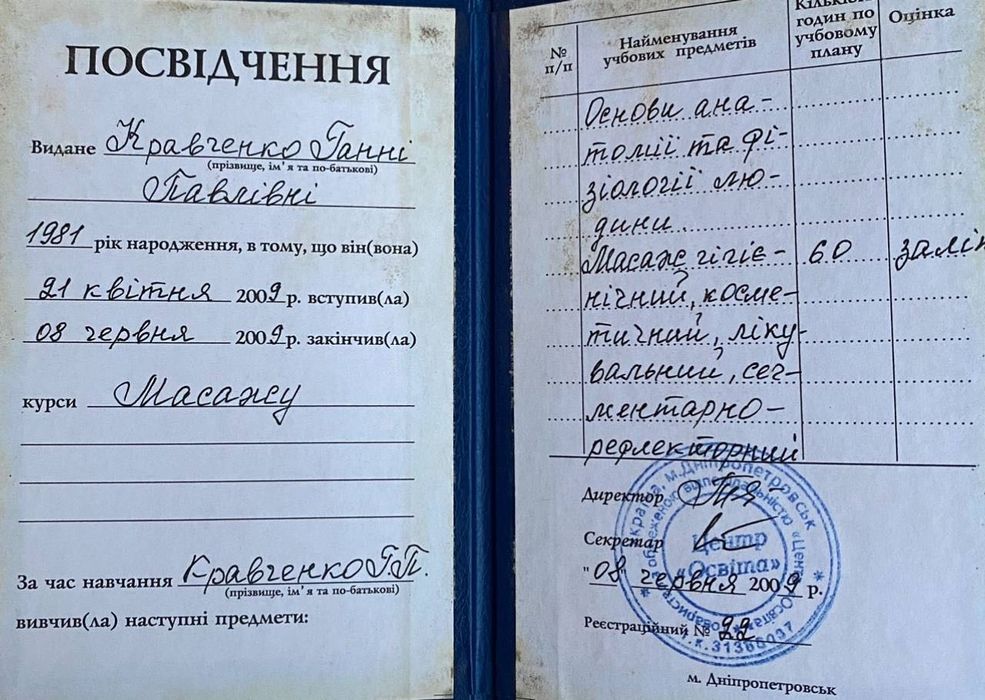 ПОСВІДЧЕННЯ
Видане Кравченко Ганні
(прізвище, ім'я та по-батькові)
Павлівні
1981 рік народження, в тому, що він(вона)
21 квітня 2009 р. вступив(ла)
08 червня 2009 р. закінчив(ла)
курси Масажу
За час навчання Кравченко Г.П.
(прізвище, ім'я та по-батькові)
вивчив(ла) наступні предмети:
№ п/п
Найменування
учбових предметів
годин по
учбовому
плану
Оцінка
Основи ана-
томії та фі-
зіології лю-
дини
Масаж гігіє- 60 залік
нічний, косме-
тичний, ліку-
вальний, сег-
ментарно-
рефлекторний
Директор
Секретар
"08 червня 2009 р.
Реєстраційний № 22
м. Дніпропетровськ
Україна, м. Дніпропетровськ
Центр
«Освіта»